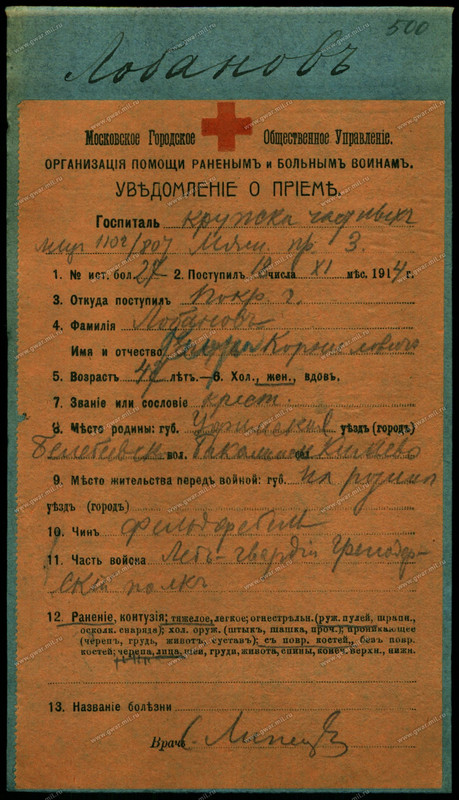 500
Лобановъ
Московское Городское Общественное Управленіе.
ОРГАНИЗАЦІЯ ПОМОЩИ РАНЕНЫМЪ и БОЛЬНЫМЪ ВОИНАМЪ.
УВѢДОМЛЕНІЕ О ПРІЕМѢ.
Госпиталь кружка частныхъ
лицъ 1102/807 Мясн. пр. 3.
1. № ист. бол. 27 2. Поступилъ 18 числа XI мѣс. 1914 г.
3. Откуда поступилъ Покр. г.
4. Фамилія Лобановъ
Имя и отчество Корниловичъ
5. Возрастъ лѣтъ. 6. Хол., жен., вдовъ,
7. Званіе или сословіе крест.
8. Мѣсто родины: губ. Уфимской уѣздъ (городъ)
Белебеевск вол.
9. Мѣсто жительства передъ войной: губ. на родинѣ
уѣздъ (городъ)
10. Чинъ фельдфебель
11. Часть войска Лебъ-гвардіи Гренадер-
скій полкъ
12. Раненіе, контузія; тяжелое, легкое; огнестрѣльн. (руж. пулей, шрапн.,
осколк. снаряда); хол. оруж. (штыкъ, шашка, проч.); проникающее
(черепъ, грудь, животъ, суставъ); съ повр. костей, безъ повр.
костей; черепа, лица, шеи, груди, живота, спины, конеч. верхн., нижн.
13. Названіе болѣзни
Врачъ С.
www.gwar.mil.ru